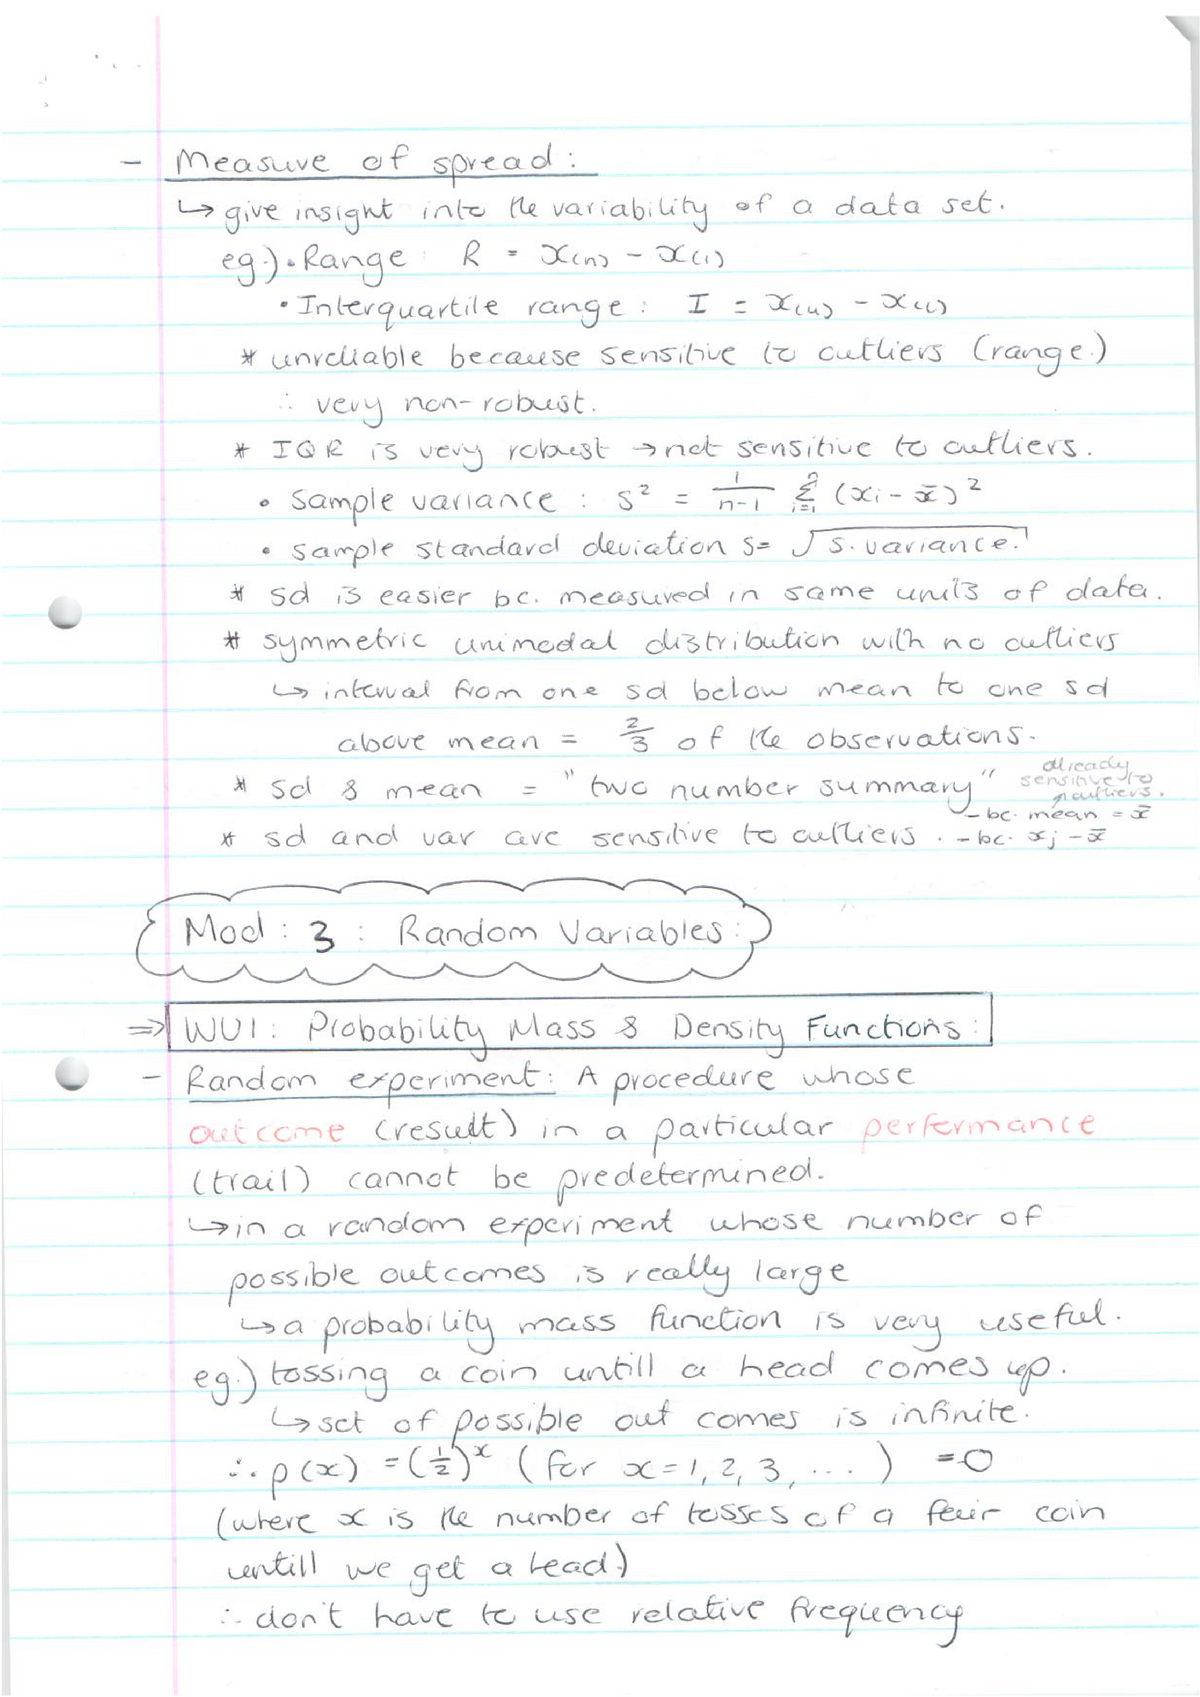 - Measure of spread:
↳ give insight into the variability of a data set.
eg.) • Range: R = x(n) - x(1)
• Interquartile range: I = x(u) - x(L)
* unreliable because sensitive to outliers (range.)
∴ very non-robust.
* IQR is very robust → not sensitive to outliers.
• Sample variance : s² = 1/(n-1) Σ_{i=1}^{n} (xi - x̄)²
• sample standard deviation s= √s.variance.
* sd is easier bc. measured in same units of data.
* symmetric unimodal distribution with no outliers
↳ interval from one sd below mean to one sd
above mean = 2/3 of the observations.
* sd & mean = "two number summary"
already
sensitive to
outliers.
- bc. mean = x̄
* sd and var are sensitive to outliers. - bc. xj - x̄
Mod : 3 : Random Variables:
⇒ WU1: Probability Mass & Density Functions:
- Random experiment: A procedure whose
outcome (result) in a particular performance
(trail) cannot be predetermined.
↳ in a random experiment whose number of
possible outcomes is really large
↳ a probability mass function is very useful.
eg.) tossing a coin untill a head comes up.
↳ set of possible out comes is infinite.
∴ p(x) = (1/2)^x (for x=1, 2, 3, ....) =0
(where x is the number of tosses of a fair coin
untill we get a head)
∴ don't have to use relative frequency